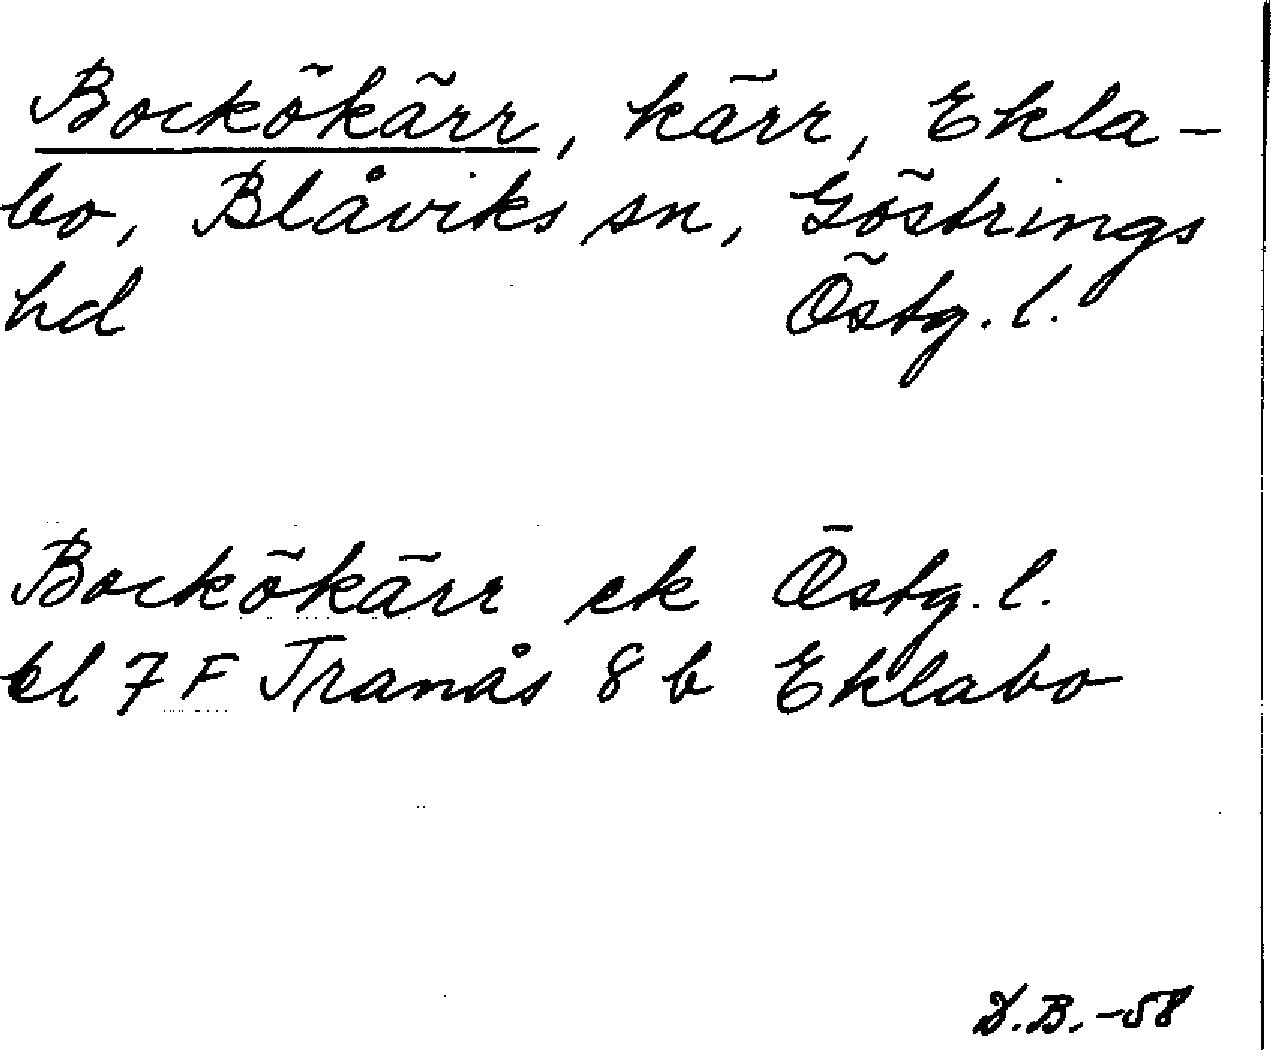 Bockökärr, kärr, Ekla-
bo, Blåviks sn, Göstrings
hd Östg. l.
Bockökärr ek Östg. l.
bl 7 F Tranås 8 b Eklabo
D.B.-58